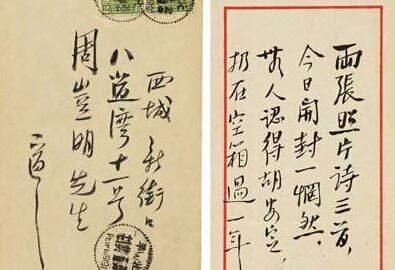 西城 新街口
八道灣十一号
周豈明先生
兩張照片詩三首,
今日開封一惘然,
無人認得胡安定,
扔在空箱過一年